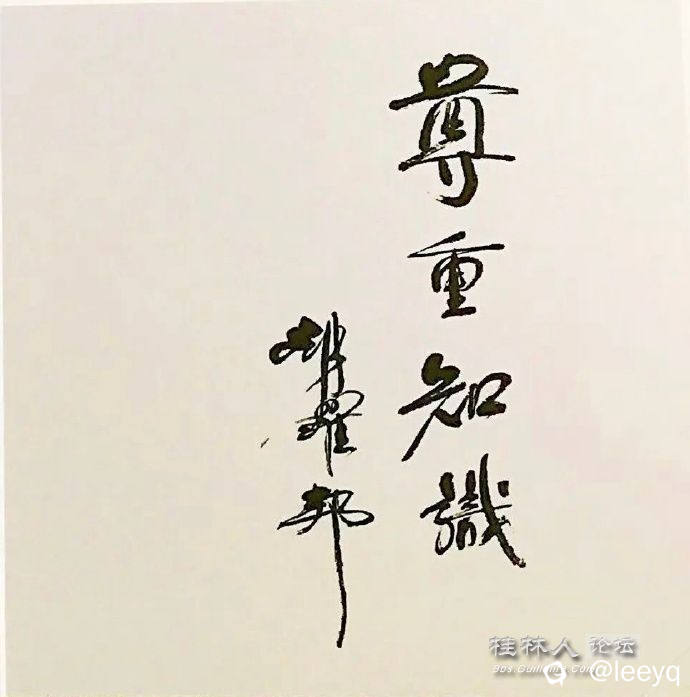 尊重知識
胡耀邦
桂林人论坛
Bbs.Guilinlife.Com
@leeyq